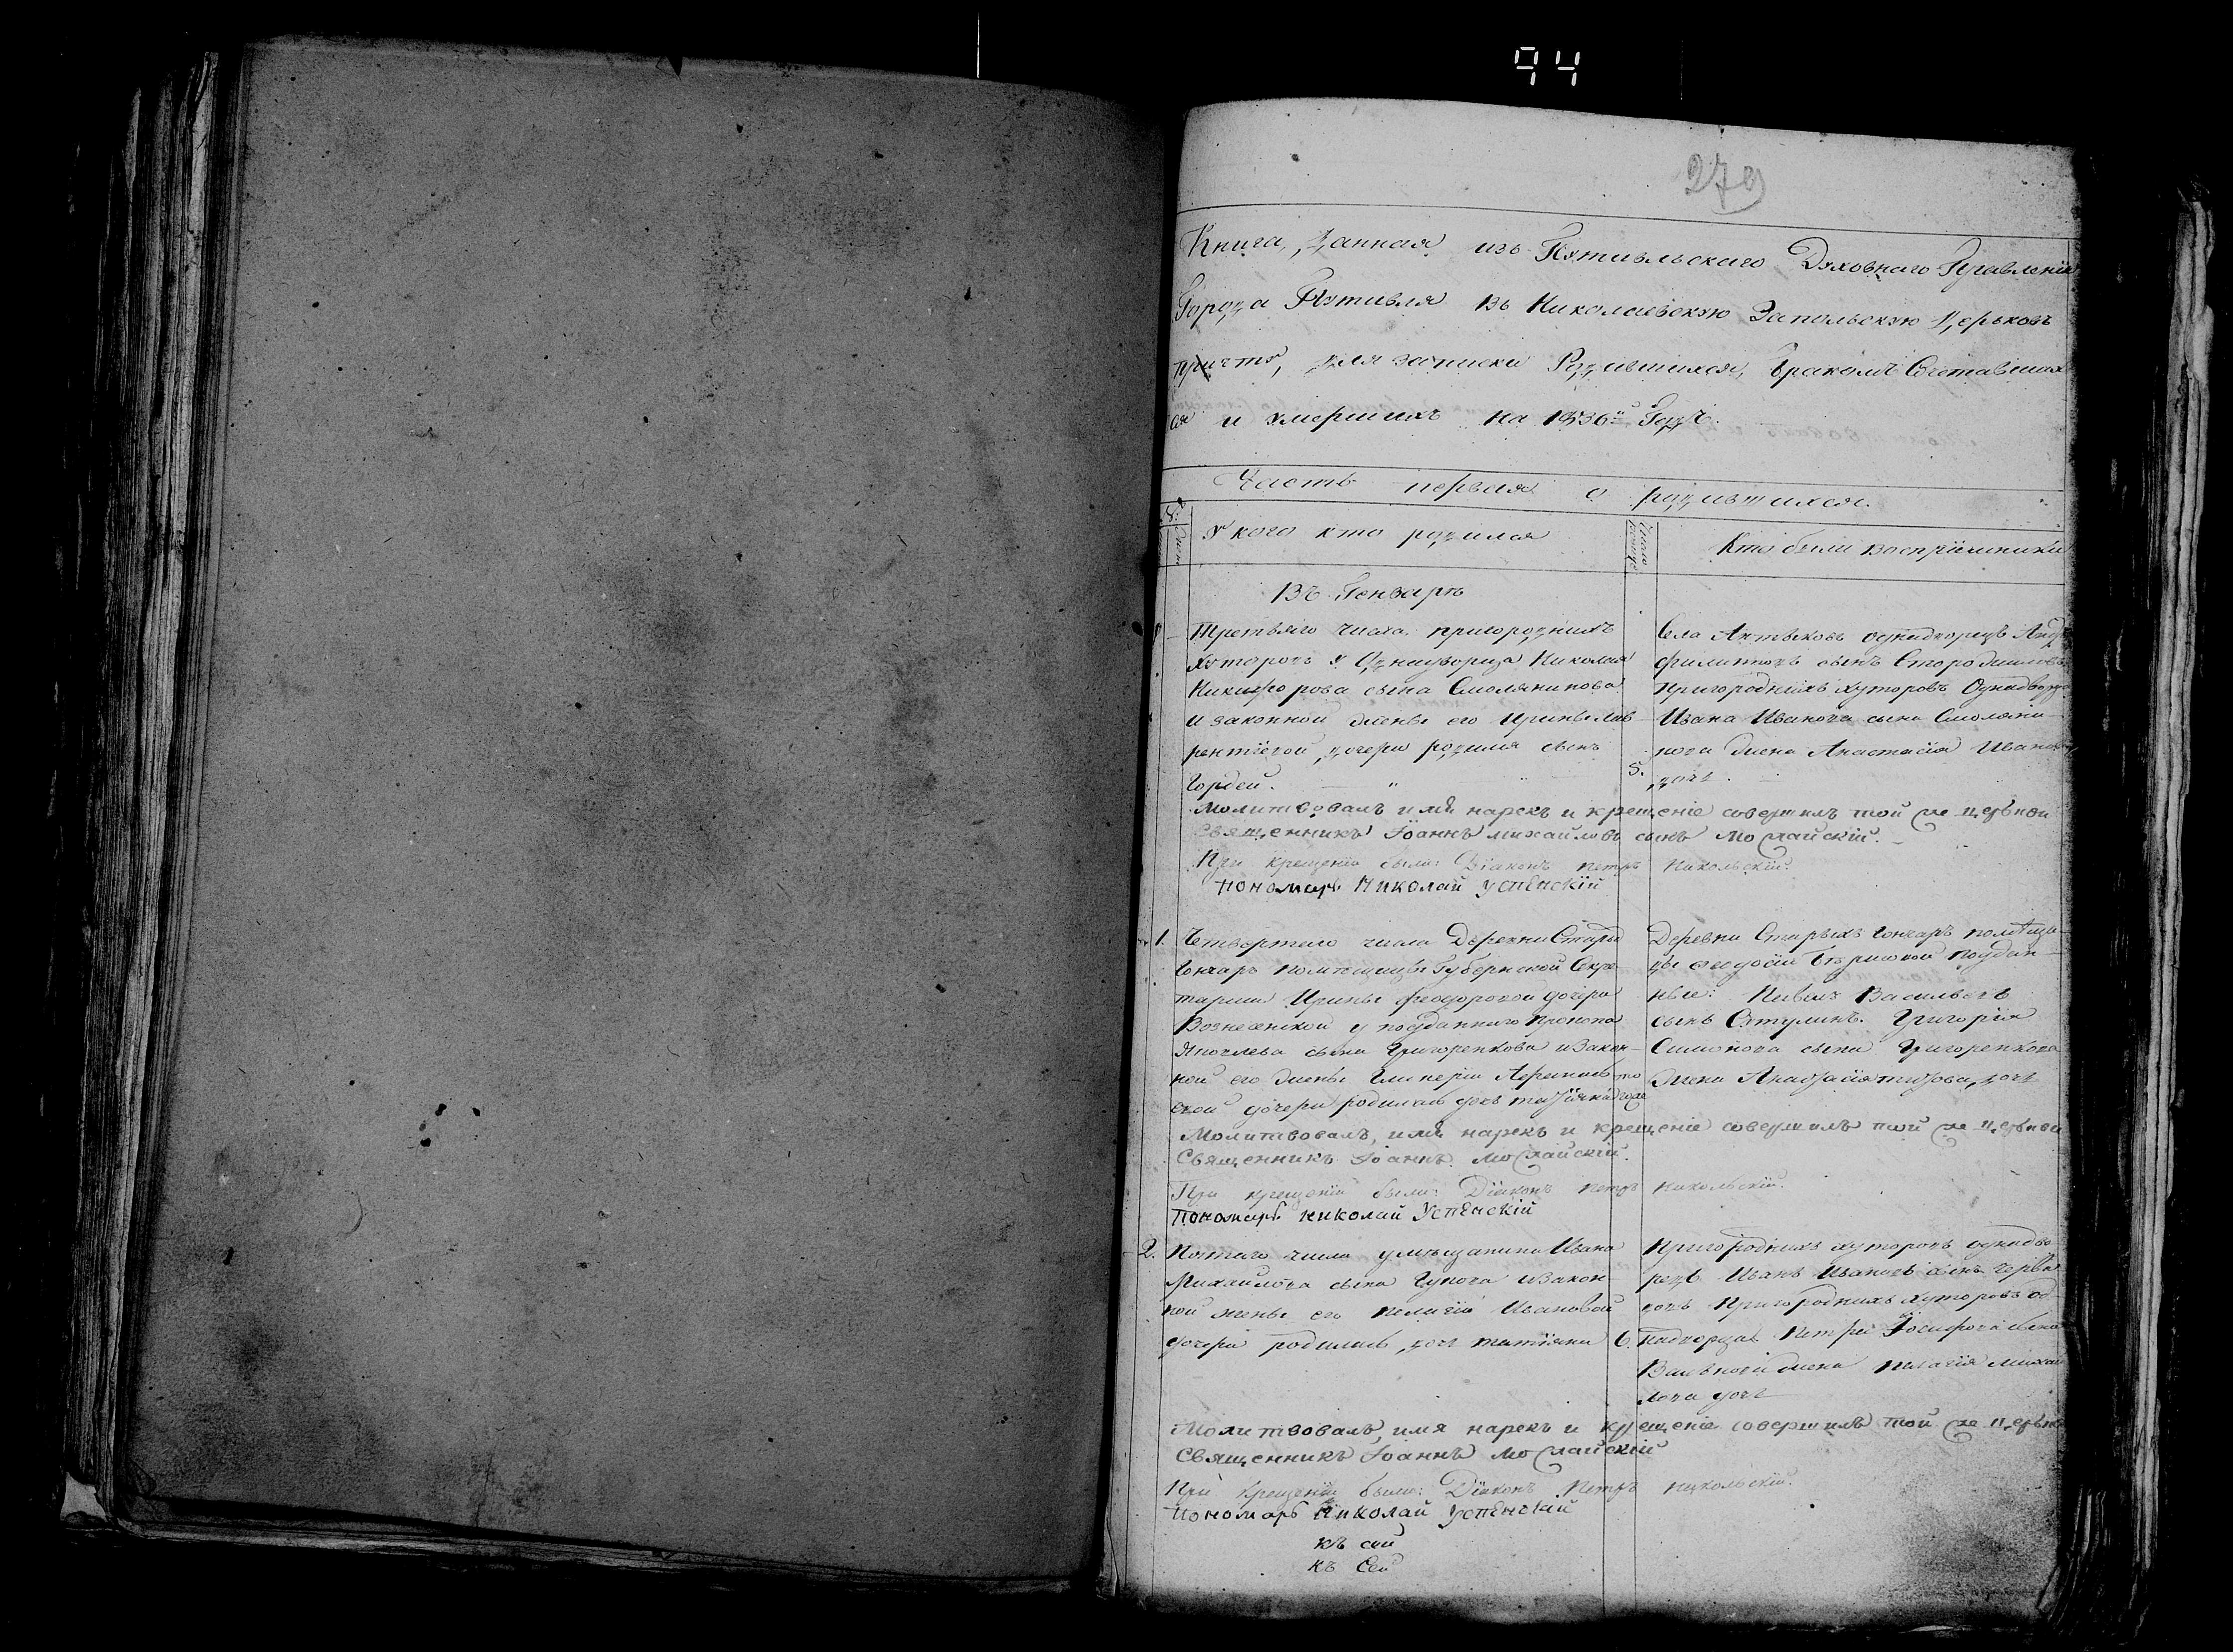 94
279
Книга, данная изъ Путивльскаго Духовнаго Правленія
Города Путивля въ Николаевскую Запольскую Церьковь
причту, для записки Родившихся, бракомъ Сочетавших
ся и умершихъ на 1836й Годъ.
Часть первая о родившихся.
У кого кто родился
Кто были воспріемники
Въ Генварѣ
Третьяго числа пригородныхъ
хуторовъ У Однодворца Николая
Никифорова сына Смольянинова
и законной жены его Ирины Лав
рентіевой дочери родился сынъ
Гордей.
5.
Села однодворецъ
филиповъ сынъ
Пригородныхъ хуторовъ
Ивана Иванова сына Смоляни
нова жена Анастасія
дочь.
Молитвовалъ имя нарекъ и крещеніе совершилъ той же церькви
Священникъ Іоаннъ Михайловъ сынъ Можайскій.
При крещеніи были: Діаконъ Петръ Никольскій.
Пономарь Николай Успенскій
1. Четвертаго числа Деревни Стары
Гончаръ помѣщицы Губернской Секре
тарши Ирины Феодоровой дочери
Вознесенской у подданнаго
сына Григоренкова и закон
ной его жены
дочери родилась дочь
Деревни Старыхъ Гончаръ помѣщи
цы поддан
ные: Василіевъ
сынъ Григорія
Симонова сына Григоренкова
жена дочь
Молитвовалъ, имя нарекъ и крещеніе совершилъ той же церькви
Священникъ Іоаннъ Можайскій.
При крещеніи были: Діаконъ Петръ Никольскій.
Пономарь Николай Успенскій
2. Пятаго числа у мѣщанина Ивана
Михайлова сына и закон
ной жены его Пелагіи Ивановой
дочери родилась дочь татіяна
6.
Пригородныхъ хуторовъ однодво
рецъ Иванъ Ивановъ сынъ
Пригородныхъ хуторовъ од
нодворца Петра Іосифова сына
жена Пелагія
лова дочь
Молитвовалъ, имя нарекъ и крещеніе совершилъ той же церькв
Священникъ Іоаннъ Можайскій
При крещеніи были: Діаконъ Петръ Никольскій.
Пономарь Николай Успенскій
къ сей
къ Сей